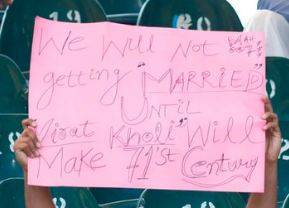 We Will Not
getting "MARRIED"
UNTIL
Virat Kholi" Will
Make 71'st Century